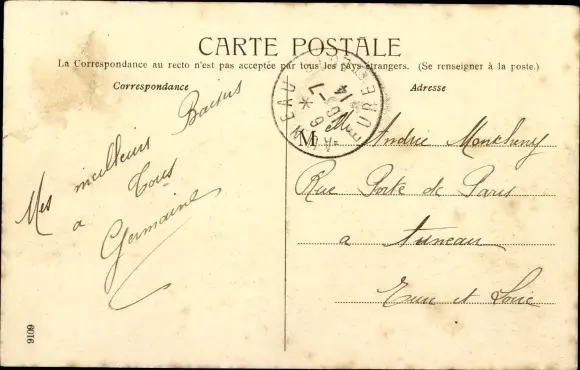 CARTE POSTALE
La Correspondance au recto n'est pas acceptée par tous les pays étrangers. (Se renseigner à la poste.)
Correspondance
Adresse
Mes meilleurs Baisers
a Tous
Germaine
AUNEAU
EURE
14
M
Andrée
Rue Porte de Paris
a Auneau
Eure et Loir
9109